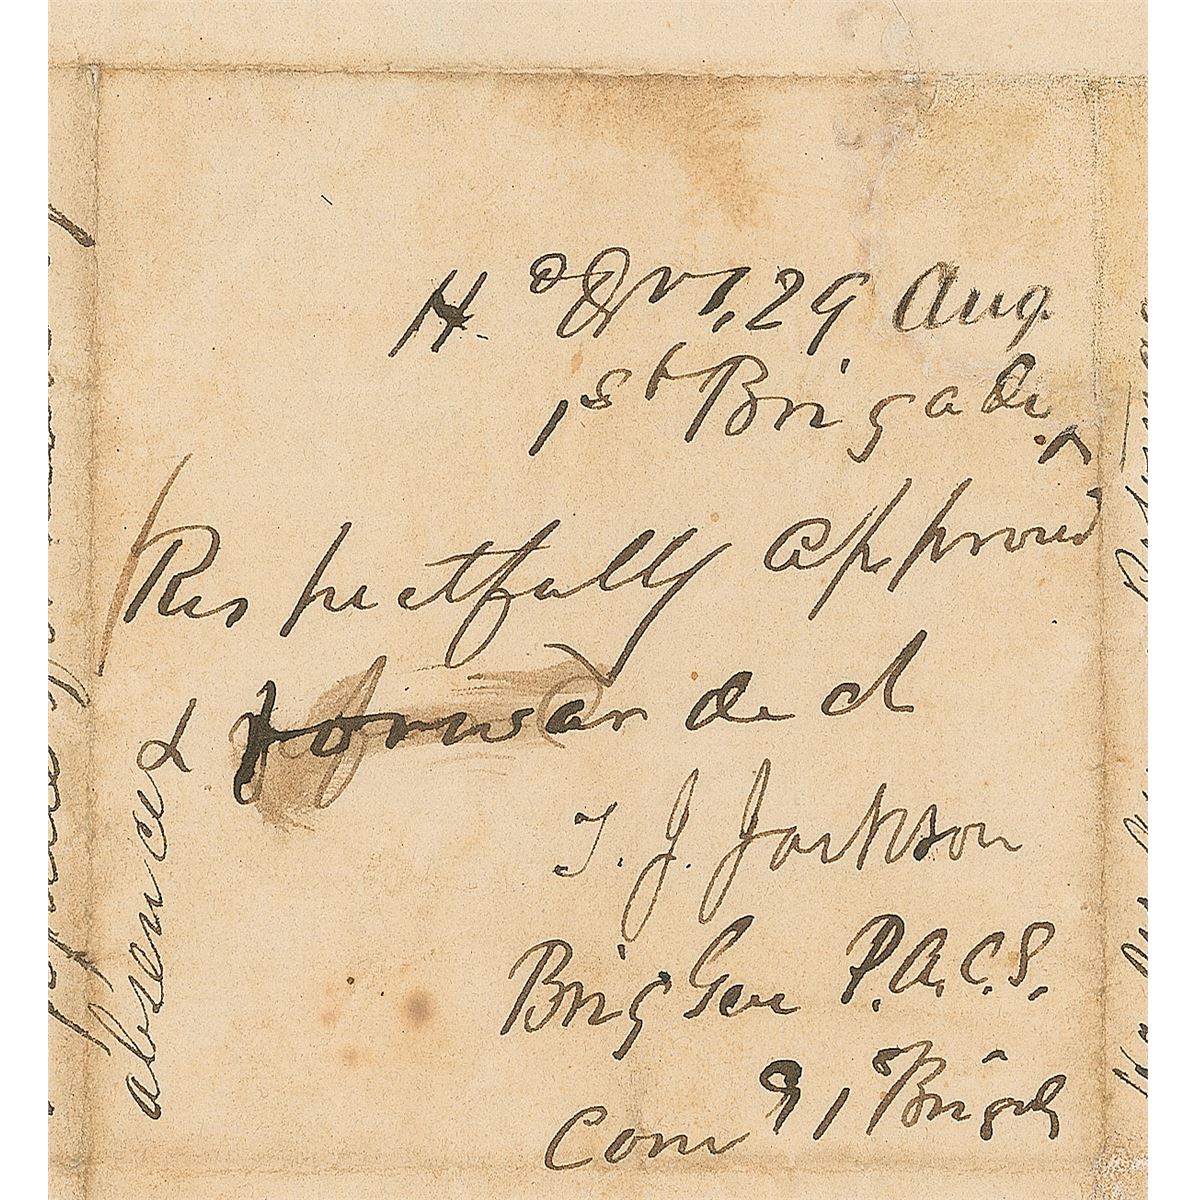 Hd Qrs, 29 Aug.
1st Brigade
Respectfully approved
& forwarded
T. J. Jackson
Brig Gen P.A.C.S.
Comdg 1st Brigade
absence